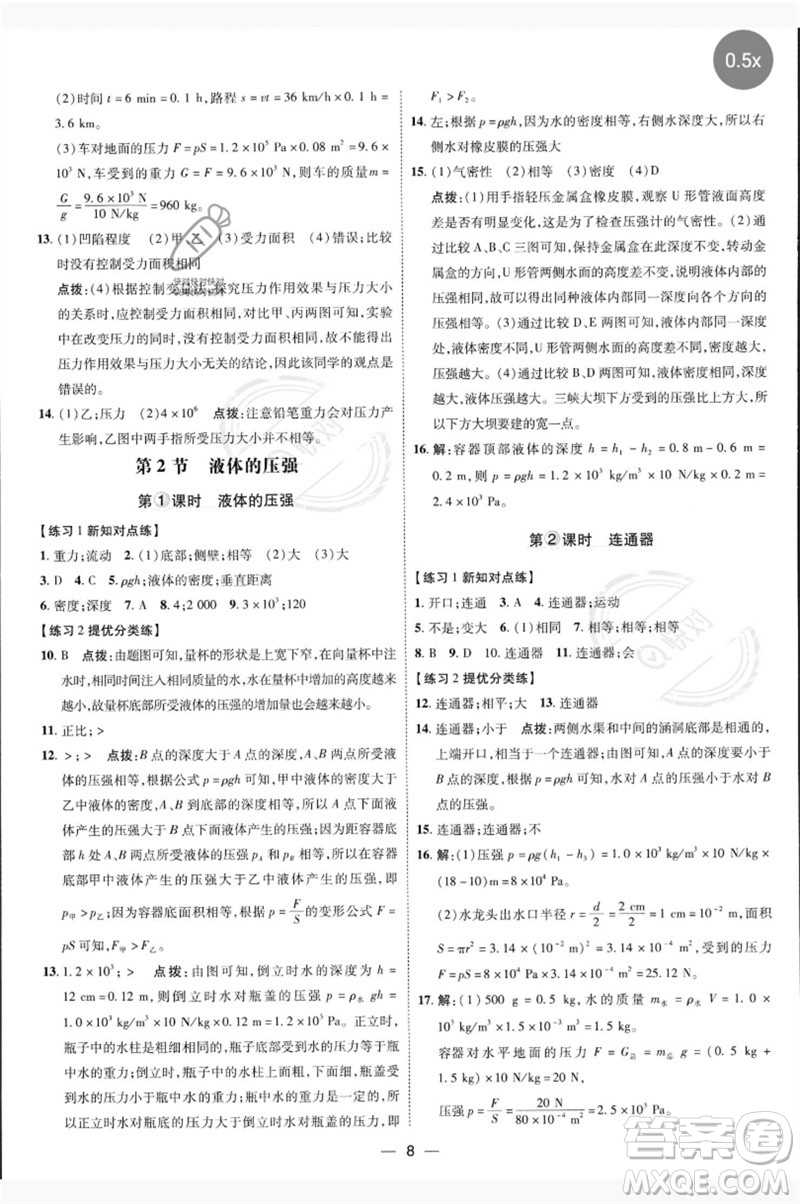 0.5x
(2)时间 t = 6 min = 0.1 h,路程 s = vt = 36 km/h × 0.1 h =
3.6 km.
(3)车对地面的压力 F = pS = 1.2 × 10⁵ Pa × 0.08 m² = 9.6 ×
10³ N,车受到的重力 G = F = 9.6 × 10³ N,则车的质量 m =
G/g = 9.6 × 10³ N / 10 N/kg = 960 kg.
13. (1)凹陷程度 (2)甲、乙 (3)受力面积 (4)错误;比较
时没有控制受力面积相同
点拨:(4)根据控制变量法,探究压力作用效果与压力大小
的关系时,应控制受力面积相同,对比甲、丙两图可知,实验
中在改变压力的同时,没有控制受力面积相同,故不能得出
压力作用效果与压力大小无关的结论,故该同学的观点是
错误的。
14. (1)乙;压力 (2)4 × 10⁶ 点拨:注意铅笔重力会对压力产
生影响,乙图中两手指所受压力大小不相等。
第2节 液体的压强
第①课时 液体的压强
【练习1 新知对点练】
1. 重力;流动 2. (1)底部;侧壁;相等 (2)大
3. D 4. C 5. ρgh;液体的密度;垂直距离
6. 密度;深度 7. D 8. 4;2 000 9. 3 × 10³;120
【练习2 提优分类练】
10. B 点拨:由题图可知,量杯的形状是上宽下窄,在向量杯中注
水时,相同时间注入相同质量的水,但量杯中水增加的高度越来
越小,故量杯底部所受的液体的压强增加量也会越来越小。
11. 正比; >
12. > ; > 点拨:B 点的深度大于 A 点的深度,甲、乙两点的
压强相等,根据公式 p = ρgh 可知,甲中液体的密度大于
乙中液体的密度,A、B 到底部的深度相等,所以 A 点下面液
体产生的压强大于 B 点下面液体产生的压强;因距容器底
部 h 处 A、B 两点所受液体的压强 pA 和 pB 相等,所以容器
底部甲中液体产生的压强大于乙中液体产生的压强,即
p甲 > p乙;因为容器底面积相等,根据 p = F/S 的变形公式 F =
pS 可知,F甲 > F乙。
13. 1.2 × 10³; > 点拨:由图可知,倒立时水的深度 h =
12 cm = 0.12 m,则倒立时水对瓶盖的压强 p = ρ水 gh =
1.0 × 10³ kg/m³ × 10 N/kg × 0.12 m = 1.2 × 10³ Pa. 正立时,
瓶子中的水柱是粗细相同的,瓶子底部受到的压力等于瓶
子中水的重力;倒立时,瓶子中的水柱上面粗,下面细,瓶盖受
到的压力小于瓶中水的重力,即正立时压力大于倒立时的压力,所
以正立时水对瓶底的压力大于倒立时水对瓶盖的压力,即
F₁ > F₂.
14. 左;根据 p = ρgh,因为水的密度相等,右侧水深度大,所以右
侧水对橡皮膜的压强大
15. (1)气密性 (2)相等 (3)密度 (4)D
点拨:(1)用手指轻压金属盒橡皮膜,观察 U 形管液面高度
差是否有明显变化,这是为了检查压强计的气密性。(2)
通过比较 A、B、C 三图可知,保持金属盒在此深度不变,转动金
属盒的方向,U 形管两侧水面的高度差不变,说明液体内部的
压强与方向无关,即在液体内部的同一深度,向各个方向的
压强相等。(3)通过比较 D、E 两图可知,液体深度相等,
液体密度不等,U 形管两侧水面的高度差不同,密度越大,
液体的压强越大。(4)通过比较 B、D 两图可知,深度越大,
液体的压强越大。三峡大坝下方受到的压强比上方大,所
以下方大坝要建的宽一点。
16. 解:容器顶部液体的深度 h = h₁ − h₂ = 0.8 m − 0.6 m =
0.2 m,则 p = ρgh = 1.2 × 10³ kg/m³ × 10 N/kg × 0.2 m =
2.4 × 10³ Pa.
第②课时 连通器
【练习1 新知对点练】
1. 开口;连通 2. B 3. A 4. 连通器;运动
5. 不是;变大 6. (1)相同 (2)相等 7. A
8. B 9. D 10. 连通器 11. 连通器;会
【练习2 提优分类练】
12. 连通器;相平;大 13. 连通器
14. 连通器;小于 点拨:两侧水渠和中间的涵洞底部是连通的,
上端开口,相当于一个连通器;由图可知,A 点的深度小于
B 点的深度,根据 p = ρgh 可知,水对 A 点的压强小于水对 B
点的压强。
15. 连通器;连通器;不
16. 解:(1)压强 p = ρg(h₁ − h₃) = 1.0 × 10³ kg/m³ × 10 N/kg ×
(18 − 10)m = 8 × 10⁴ Pa.
(2)水龙头出水口半径 r = d/2 = 2 cm/2 = 1 cm = 10⁻² m,面积
S = πr² = 3.14 × (10⁻² m)² = 3.14 × 10⁻⁴ m²,受到的压力
F = pS = 8 × 10⁴ Pa × 3.14 × 10⁻⁴ m² = 25.12 N.
17. 解:(1)500 g = 0.5 kg,水的质量 m水 = ρ水 V = 1.0 ×
10³ kg/m³ × 1.5 × 10⁻³ m³ = 1.5 kg.
容器对水平地面的压力 F = G总 = m总 g = (0.5 kg +
1.5 kg) × 10 N/kg = 20 N,
压强 p = F/S = 20 N / 80 × 10⁻⁴ m² = 2.5 × 10³ Pa.
8
答案圈
MXQE.COM